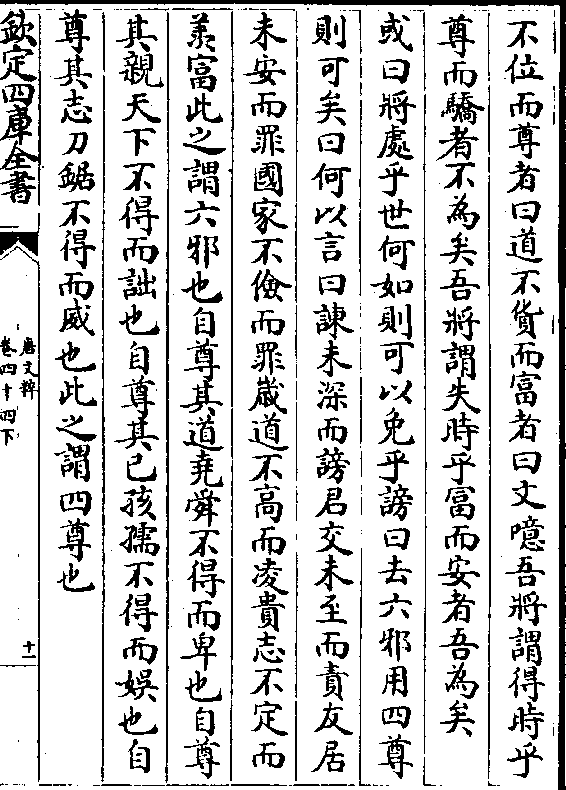 不位而尊者曰道不貨而富者曰文噫吾將謂得時乎
尊而驕者不為矣吾將謂失時乎富而安者吾為矣
或曰將處乎世何如則可以免乎謗曰去六邪用四尊
則可矣曰何以言曰諫未深而謗君交未至而責友居
未安而罪國家不儉而罪歲道不高而凌貴志不定而
羨富此之謂六邪也自尊其道堯舜不得而卑也自尊
其親天下不得而詘也自尊其已孩孺不得而娛也自
尊其志刀鋸不得而威也此之謂四尊也
欽定四庫全書
唐文粹
卷四十四下
十一